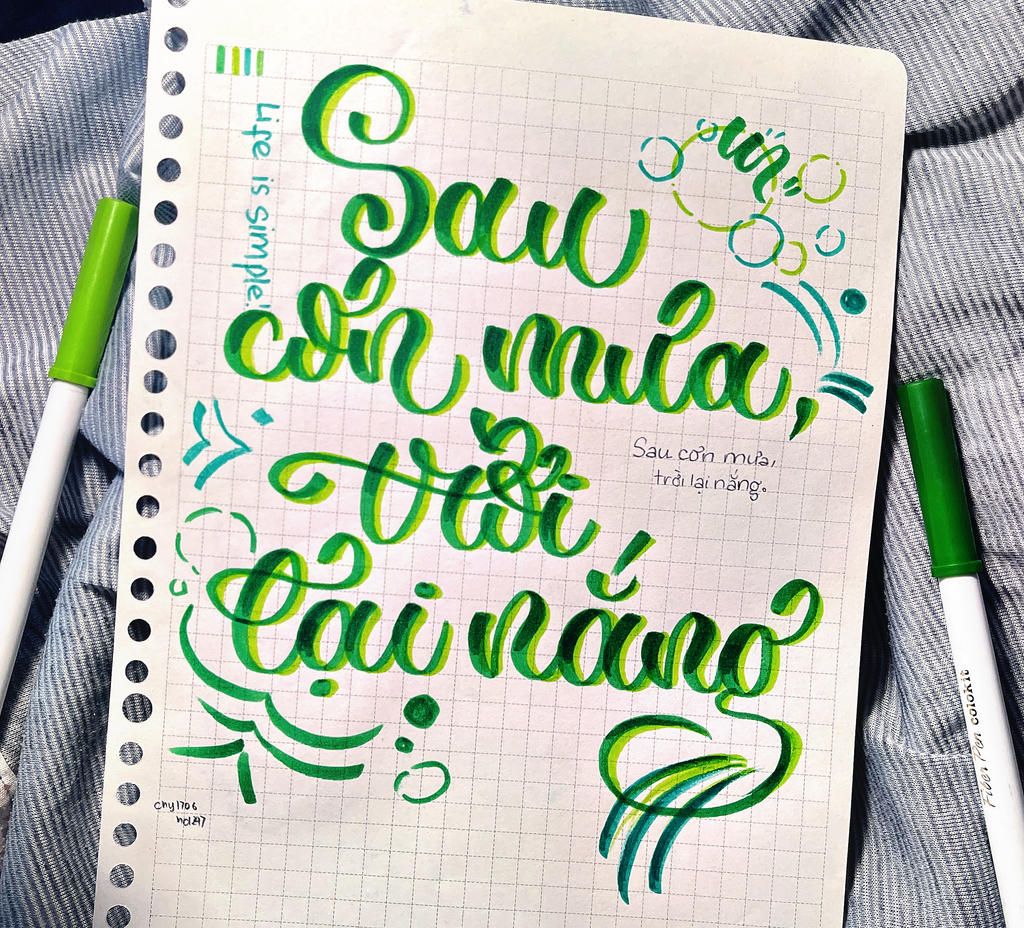 Life is simple!
Sau
cơn mưa,
trời
lại nắng
Sau cơn mưa,
trời lại nắng.
Fiber Pen colokit